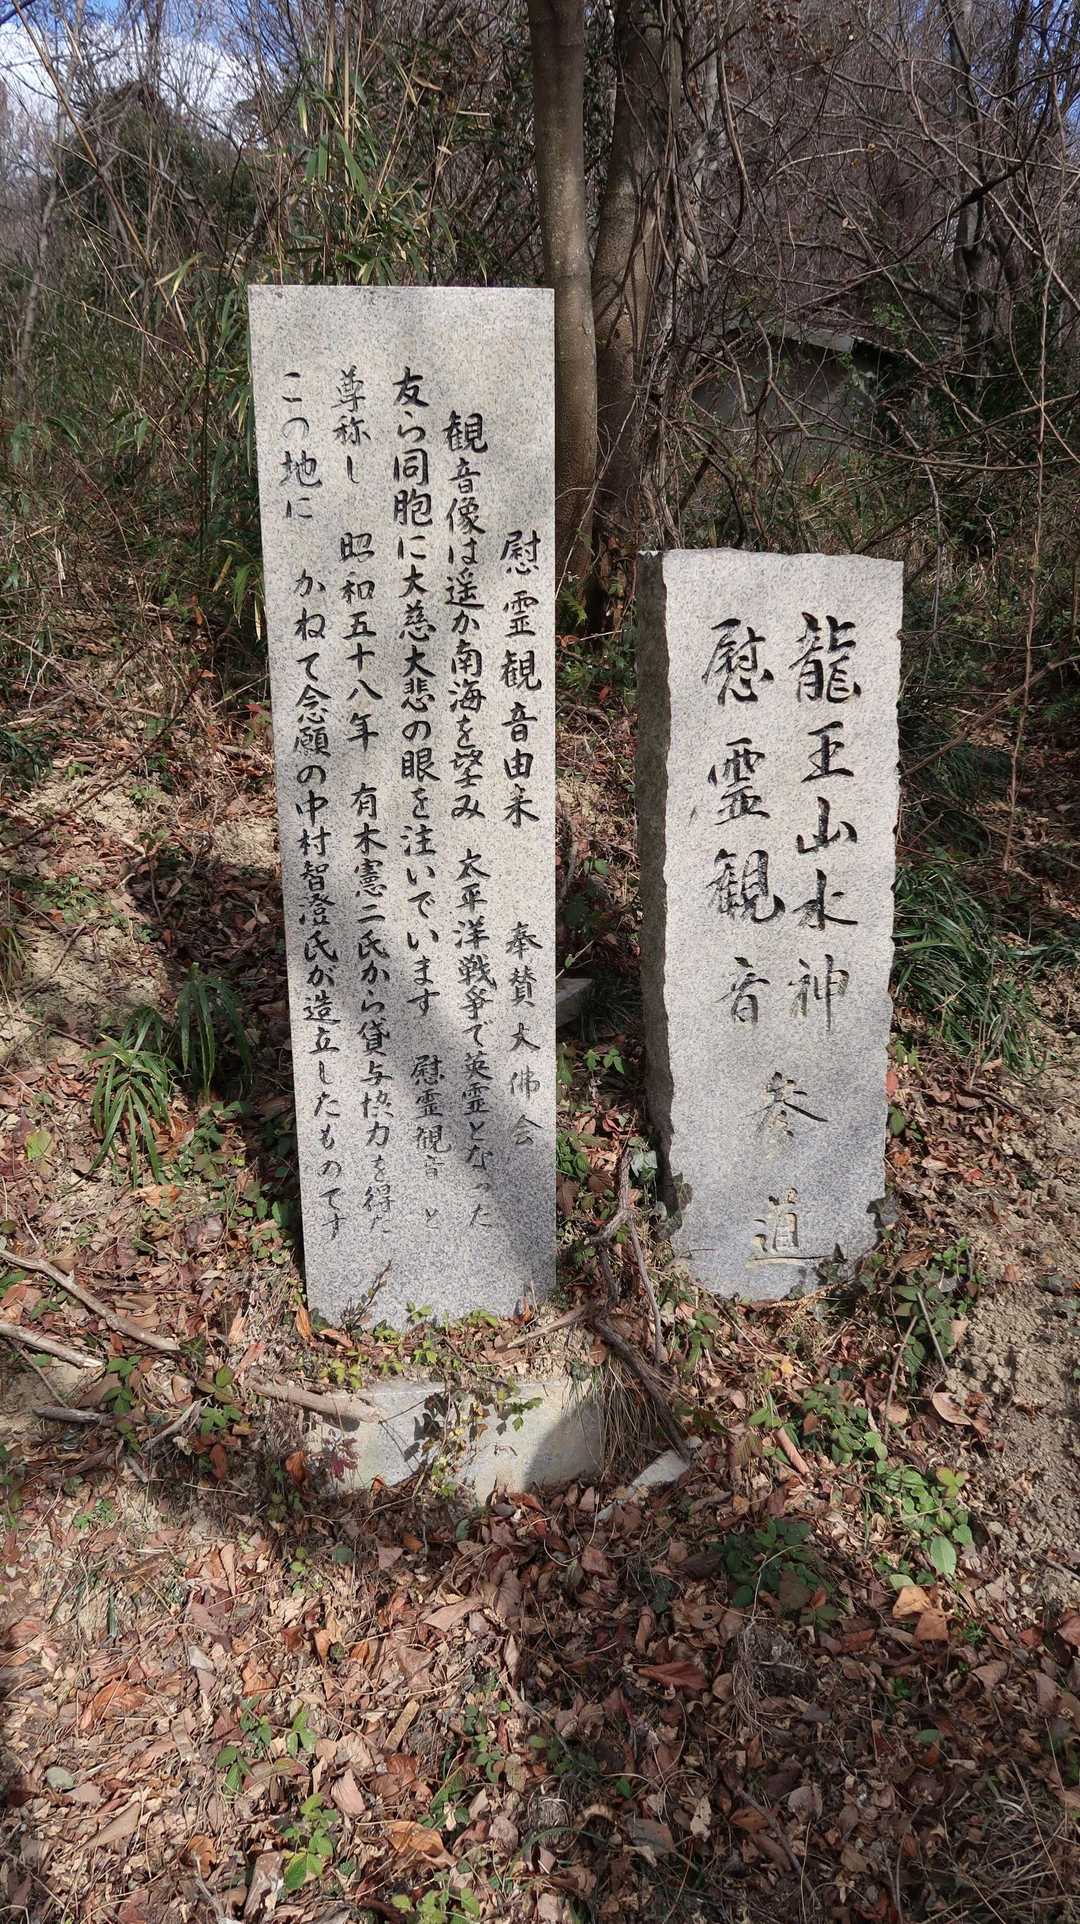 慰霊観音由来 奉賛大佛会
観音像は遥か南海を望み 太平洋戦争で英霊となった
友ら同胞に大慈大悲の眼を注いでいます 慰霊観音と
尊称し 昭和五十八年 有木憲二氏から貸与協力を得た
この地に かねて念願の中村智澄氏が造立したものです
龍王山水神
慰霊観音
参道